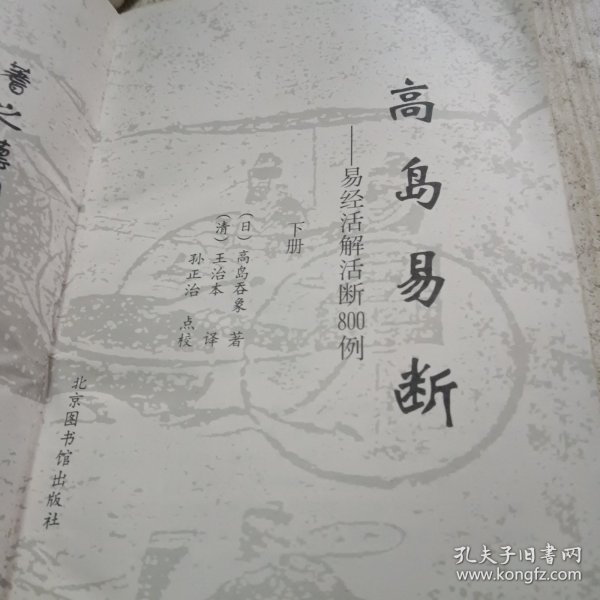 高岛易断
——易经活解活断800例
下册
(日)高岛吞象 著
(清)王治本 译
孙正治 点校
北京图书馆出版社
蓍之德
孔夫子旧书网
www.kongfz.com